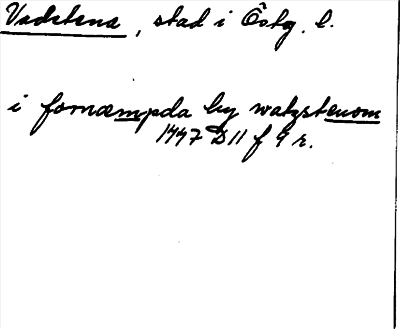 Vadstena, stad i Östg. l.
i fornæmpda by watzstenom
1447 D 11 f 9 r.